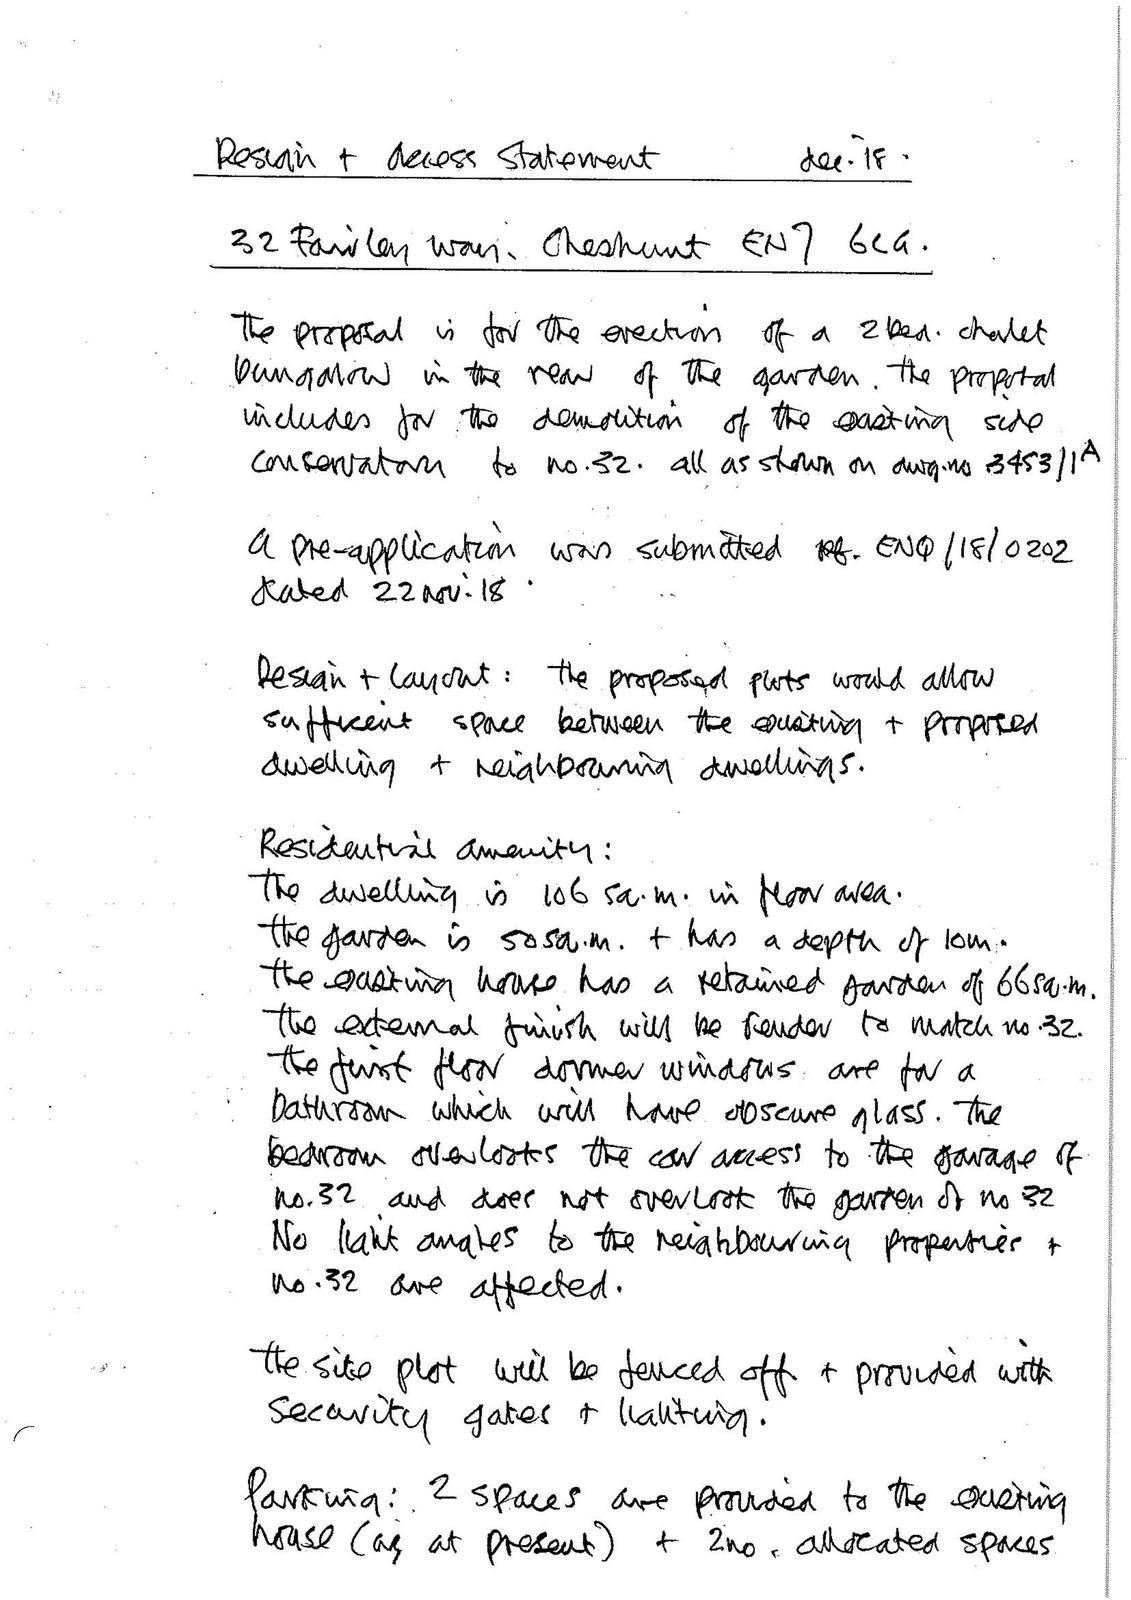 Design + Access Statement dec. '18.
32 Fairley Way. Cheshunt EN7 6LG.
The proposal is for the erection of a 2 bed. chalet
bungalow in the rear of the garden. The proposal
includes for the demolition of the existing side
conservatory to no.32. all as shown on dwg.no 3453/1A
A pre-application was submitted ref. ENQ/18/0202
dated 22 nov. '18
Design + Layout: The proposed plots would allow
sufficient space between the existing + proposed
dwelling + neighbouring dwellings.
Residential amenity:
The dwelling is 106 sq.m. in floor area.
The garden is 50sq.m. + has a depth of 10m.
The existing house has a retained garden of 66sq.m.
The external finish will be render to match no.32.
The first floor dormer windows are for a
bathroom which will have obscure glass. The
bedroom overlooks the car access to the garage of
no.32 and does not overlook the garden of no 32
No light angles to the neighbouring properties +
no.32 are affected.
The site plot will be fenced off + provided with
security gates + lighting.
Parking: 2 spaces are provided to the existing
house (as at present) + 2no. allocated spaces